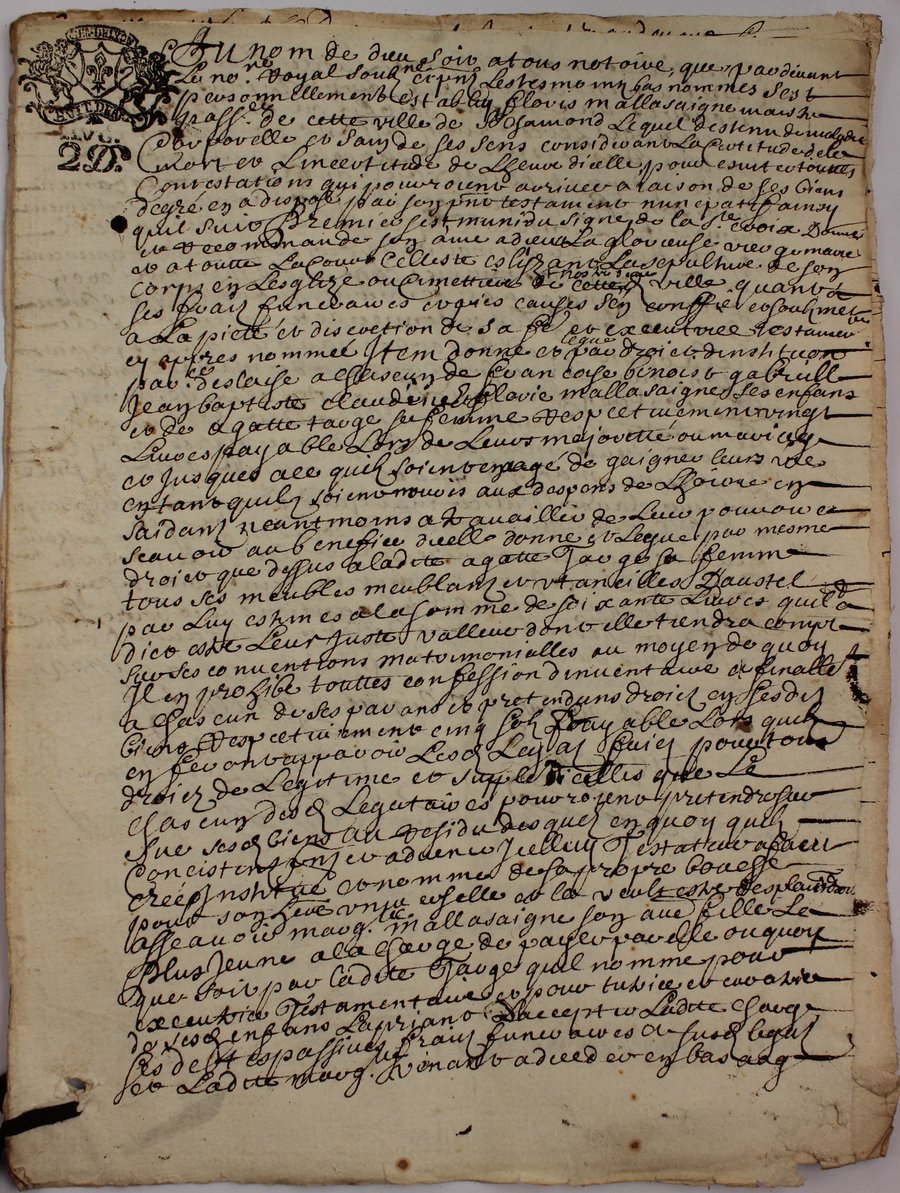 GEN.DE LYON
CENT.DEN
2D.
Au nom de dieu soit a tous notoire, que pardevant
Le no.re Royal soub.né et pnt Les tesmoins bas nommes s'est
personnellement estably Clovis mallasaigne mais.tre
pass.er de cette ville de St Chamond Lequel destenu de maladie
Corporelle et sain de ses sens considérant La Certitude dela
mort et Lincertitude de Lheure dicelle, pour esviter touttes
Contestations qui pourroient arriver a raison de ses biens
degré en a disposé par son pnt testament nuncupatif ainsy
quil suit Premier sest muni du signe de la s.te croix
et Recommande son ame a dieu La glorieuse vierge marie
et a toutte La Cour Celleste eslizant La sepulture de son
corps en Lesglize ou Cimettiere de cette ville quant a
ses fraix funeraires et pies causes sen confie et soubmet
a La pieté et discretion de sa fe et executrice testamen.re
cy apres nommée Item donne et legue par droit dinstitution
par.re deslaisse a Chascun de francoise benoist gabriell
Jean baptiste claudine et flavie mallasaigne ses enfans
et de agatte farge sa femme Respectivement vingt
Livres payable Lors de Leurs majorette ou mariage
et Jusques a ce quilz soient en age de gaigner leurs vie
entant quilz soient nouris aux despens de Lhoirie en
saidant neantmoins a travailler de Leur pouvoir et
scavoir au benefice dicelle donne et Legue par mesme
droict que dessus a ladite agatte farge sa femme
tous ses meubles meublans et Utancilles Daustel
par Luy estimes a la somme de soixante Livres quil a
dict estre Leur Juste valleur dont elle tiendra compte
sur ses conventions matrimonialles au moyen de quoy
Il en prohibe touttes confession dinventaire et finalle
a Chascun de ses parans et pretendans droict en sesdis
biens Respectivement cinq solz payable Lors quilz
en feront apparoir Lesd Legas faicts pour tous
droicts de Legitime et supplé dicelles que Le
Chascun desd Legataires pourroient pretendre sur
Sur sesd biens Au Residu desquelz en quoy quilz
Concistent pnt et advenir Icelluy Testateur a faict
créé Institué et nommé de sa propre bouche
pour son heritiere universelle et la veult estre de plain droit
asseavoir marg.tte mallasaigne son autre fille Le
Plus Jeune a la charge de payer par elle ou quoy
que soit par ladite farge quil nomme pour
executrice Testamentaire et pour tutrice et curatrice
de sesd enfans La priant daccepter Ladite charge
ses debtes passives fraix funeraires et susd legatz
et Ladite marg.te venant a deceder en bas aag